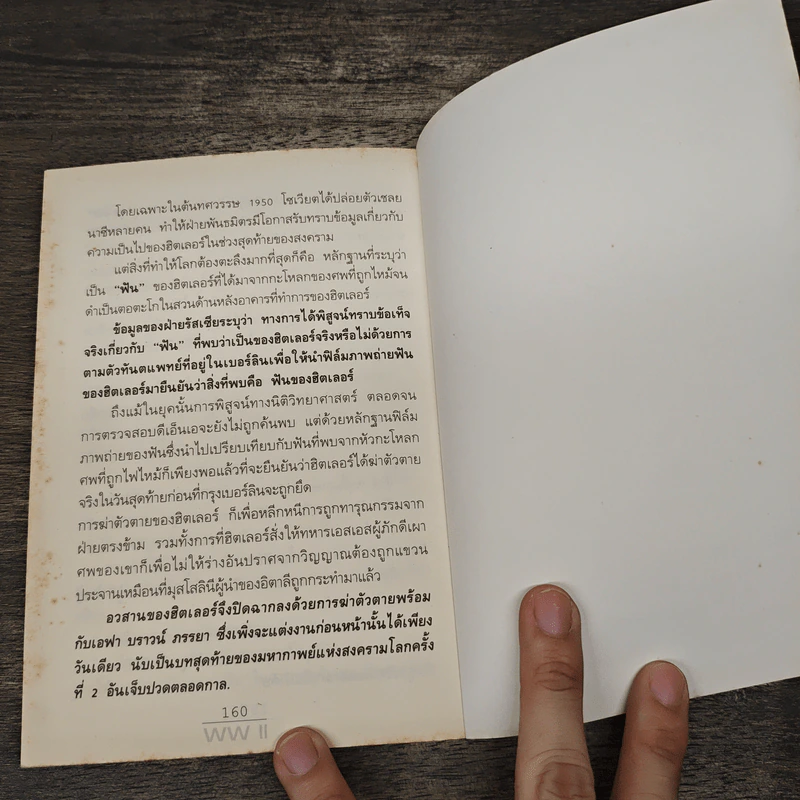 โดยเฉพาะในต้นทศวรรษ 1950 โซเวียตได้ปล่อยตัวเชลย
นาซีหลายคน ทำให้ฝ่ายพันธมิตรมีโอกาสรับทราบข้อมูลเกี่ยวกับ
ความเป็นไปของฮิตเลอร์ในช่วงสุดท้ายของสงคราม
แต่สิ่งที่ทำให้โลกต้องตะลึงมากที่สุดก็คือ หลักฐานที่ระบุว่า
เป็น “ฟัน” ของฮิตเลอร์ที่ได้มาจากกะโหลกของศพที่ถูกไหม้จน
ดำเป็นตอตะโกในสวนด้านหลังอาคารที่ทำการของฮิตเลอร์
ข้อมูลของฝ่ายรัสเซียระบุว่า ทางการได้พิสูจน์ทราบข้อเท็จ
จริงเกี่ยวกับ “ฟัน” ที่พบว่าเป็นของฮิตเลอร์จริงหรือไม่ด้วยการ
ตามตัวทันตแพทย์ที่อยู่ในเบอร์ลินเพื่อให้นำฟิล์มภาพถ่ายฟัน
ของฮิตเลอร์มายืนยันว่าสิ่งที่พบคือ ฟันของฮิตเลอร์
ถึงแม้ในยุคนั้นการพิสูจน์ทางนิติวิทยาศาสตร์ ตลอดจน
การตรวจสอบดีเอ็นเอจะยังไม่ถูกค้นพบ แต่ด้วยหลักฐานฟิล์ม
ภาพถ่ายของฟันซึ่งนำไปเปรียบเทียบกับฟันที่พบจากหัวกะโหลก
ศพที่ถูกไฟไหม้ก็เพียงพอแล้วที่จะยืนยันว่าฮิตเลอร์ได้ฆ่าตัวตาย
จริงในวันสุดท้ายก่อนที่กรุงเบอร์ลินจะถูกยึด
การฆ่าตัวตายของฮิตเลอร์ ก็เพื่อหลีกหนีการถูกทารุณกรรมจาก
ฝ่ายตรงข้าม รวมทั้งการที่ฮิตเลอร์สั่งให้ทหารเอสเอสผู้ภักดีเผา
ศพของเขาก็เพื่อไม่ให้ร่างอันปราศจากวิญญาณต้องถูกแขวน
ประจานเหมือนที่มุสโสลินีผู้นำของอิตาลีถูกกระทำมาแล้ว
อวสานของฮิตเลอร์จึงปิดฉากลงด้วยการฆ่าตัวตายพร้อม
กับเอฟา บราวน์ ภรรยา ซึ่งเพิ่งจะแต่งงานก่อนหน้านั้นได้เพียง
วันเดียว นับเป็นบทสุดท้ายของมหากาพย์แห่งสงครามโลกครั้ง
ที่ 2 อันเจ็บปวดตลอดกาล.
160
WW II